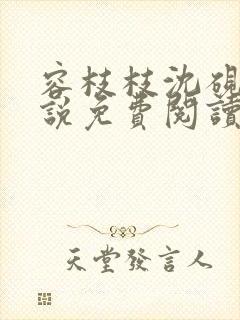 容枝枝沈硯
說免費閱讀
天堂發言人